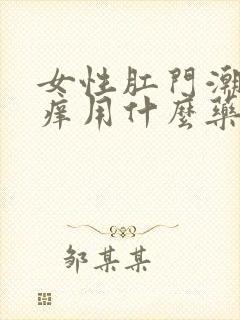 女性肛門潮
痒用什麼藥
邹某某